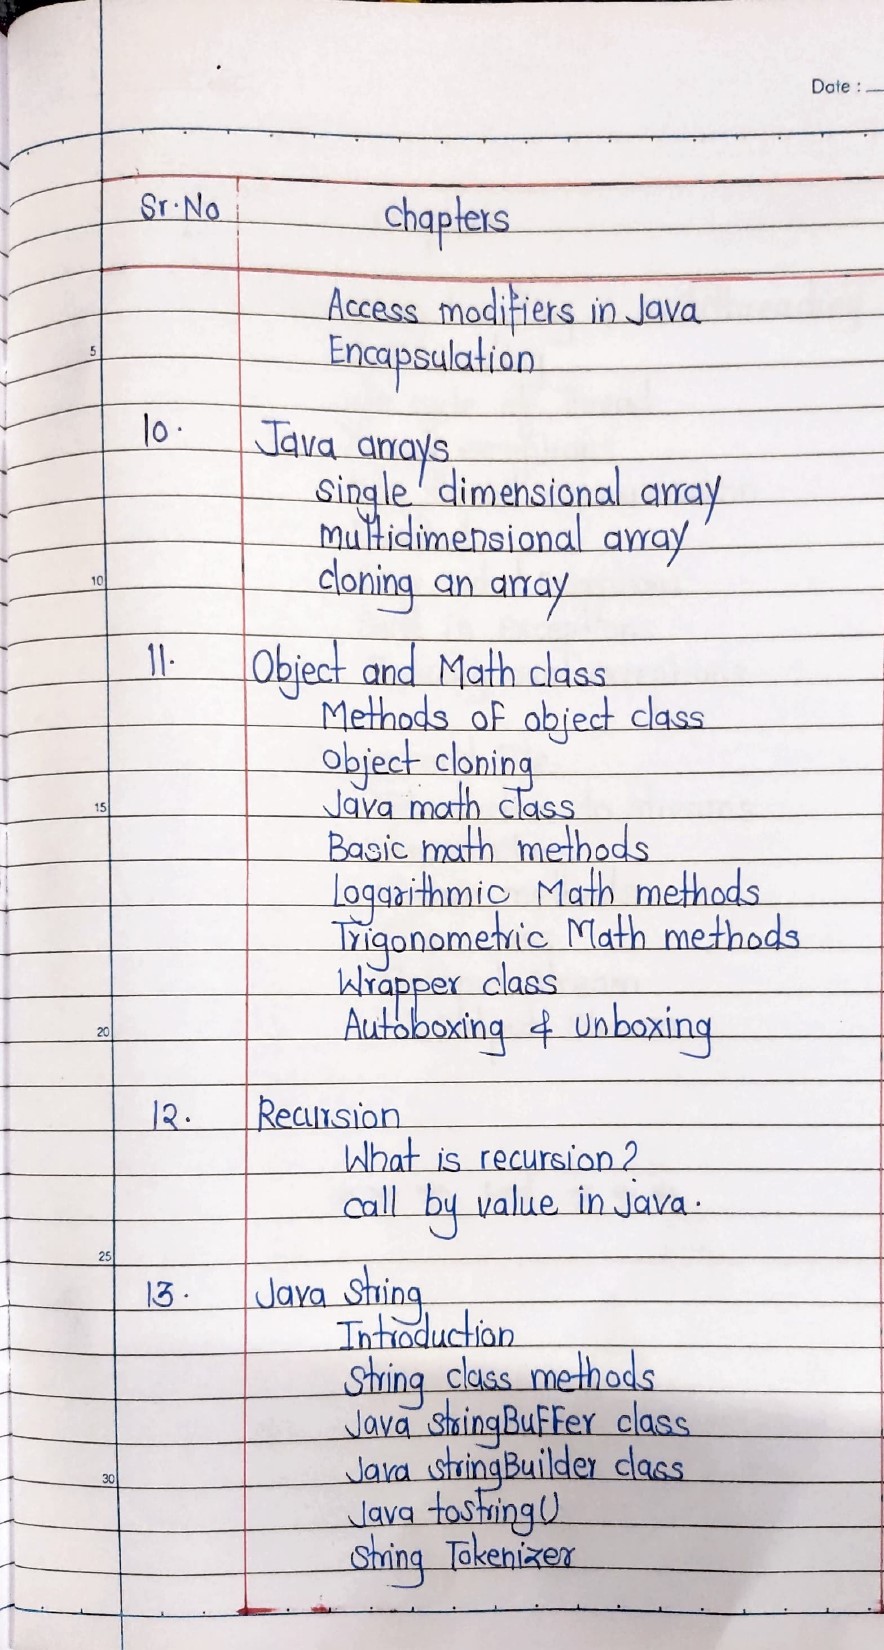 Date :
Sr.No chapters
Access modifiers in Java
5
Encapsulation
10. Java arrays
single dimensional array
multidimensional array
10
cloning an array
11. Object and Math class
Methods of object class
object cloning
15
Java math class
Basic math methods
Logarithmic Math methods
Trigonometric Math methods
Wrapper class
20
Autoboxing & unboxing
12. Recursion
What is recursion?
call by value in java.
25
13. Java string
Introduction
string class methods
Java stringBuffer class
30
Java stringBuilder class
Java tostring()
string Tokenizer